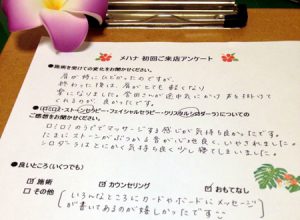 メハナ 初回ご来店アンケート
●施術を受けての変化をお聞かせください。
肩が特にひどかったのですが、
終わった後は、肩がとても軽くなり
楽になりました。
くれるのが、良かったです。
(ロミロミ・ストーンセラピー・フェイシャルセラピー・クリスタルシロダーラ)についての
ご感想をお聞かせください。
ロミロミ カラダでマッサージする感じが気持ち良かったです。
たまにストーンがぶつかる音が心地良く、いやされました。
シロダーラはとにかく気持ち良く少し寝てしまいました。
●良いところ(いくつでも)
☑ 施術 ☑ カウンセリング ☑ おもてなし
□ その他 (いろんなところにカードやボードにメッセージ
が書いてあるのが嬉しかったです